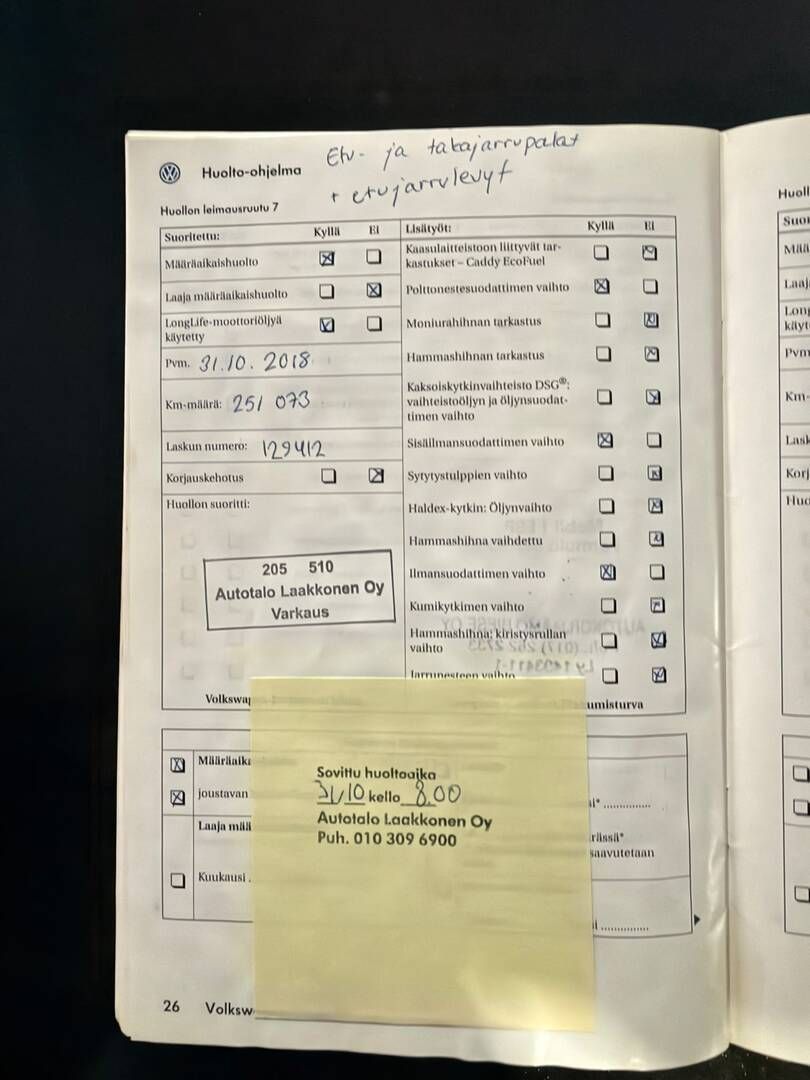 Etu- ja takajarrupalat
+ etujarrulevyt
Huolto-ohjelma
Huollon leimausruutu 7
Suoritettu: Kyllä Ei
Määräaikaishuolto
Laaja määräaikaishuolto
LongLife-moottoriöljyä
käytetty
Pvm. 31.10. 2018
Km-määrä: 251 073
Laskun numero: 129412
Korjauskehotus
Huollon suoritti:
205 510
Autotalo Laakkonen Oy
Varkaus
Lisätyöt: Kyllä Ei
Kaasulaitteistoon liittyvät tar-
kastukset – Caddy EcoFuel
Polttonestesuodattimen vaihto
Moniurahihnan tarkastus
Hammashihnan tarkastus
Kaksoiskytkinvaihteisto DSG®:
vaihteistoöljyn ja öljynsuodat-
timen vaihto
Sisäilmansuodattimen vaihto
Sytytystulppien vaihto
Haldex-kytkin: Öljynvaihto
Hammashihna vaihdettu
Ilmansuodattimen vaihto
Kumikytkimen vaihto
Hammashihna: kiristysrullan
vaihto
Jarrunesteen vaihto
Volkswa
umisturva
Määräaik
joustavan
Laaja mää
Kuukausi .
rässä*
saavutetaan
Sovittu huoltoaika
31/10 kello 8.00
Autotalo Laakkonen Oy
Puh. 010 309 6900
26 Volksw
Huoll
Suor
Mää
Laaj
Long
käyt
Pvm
Km-
Lask
Korj
Huo